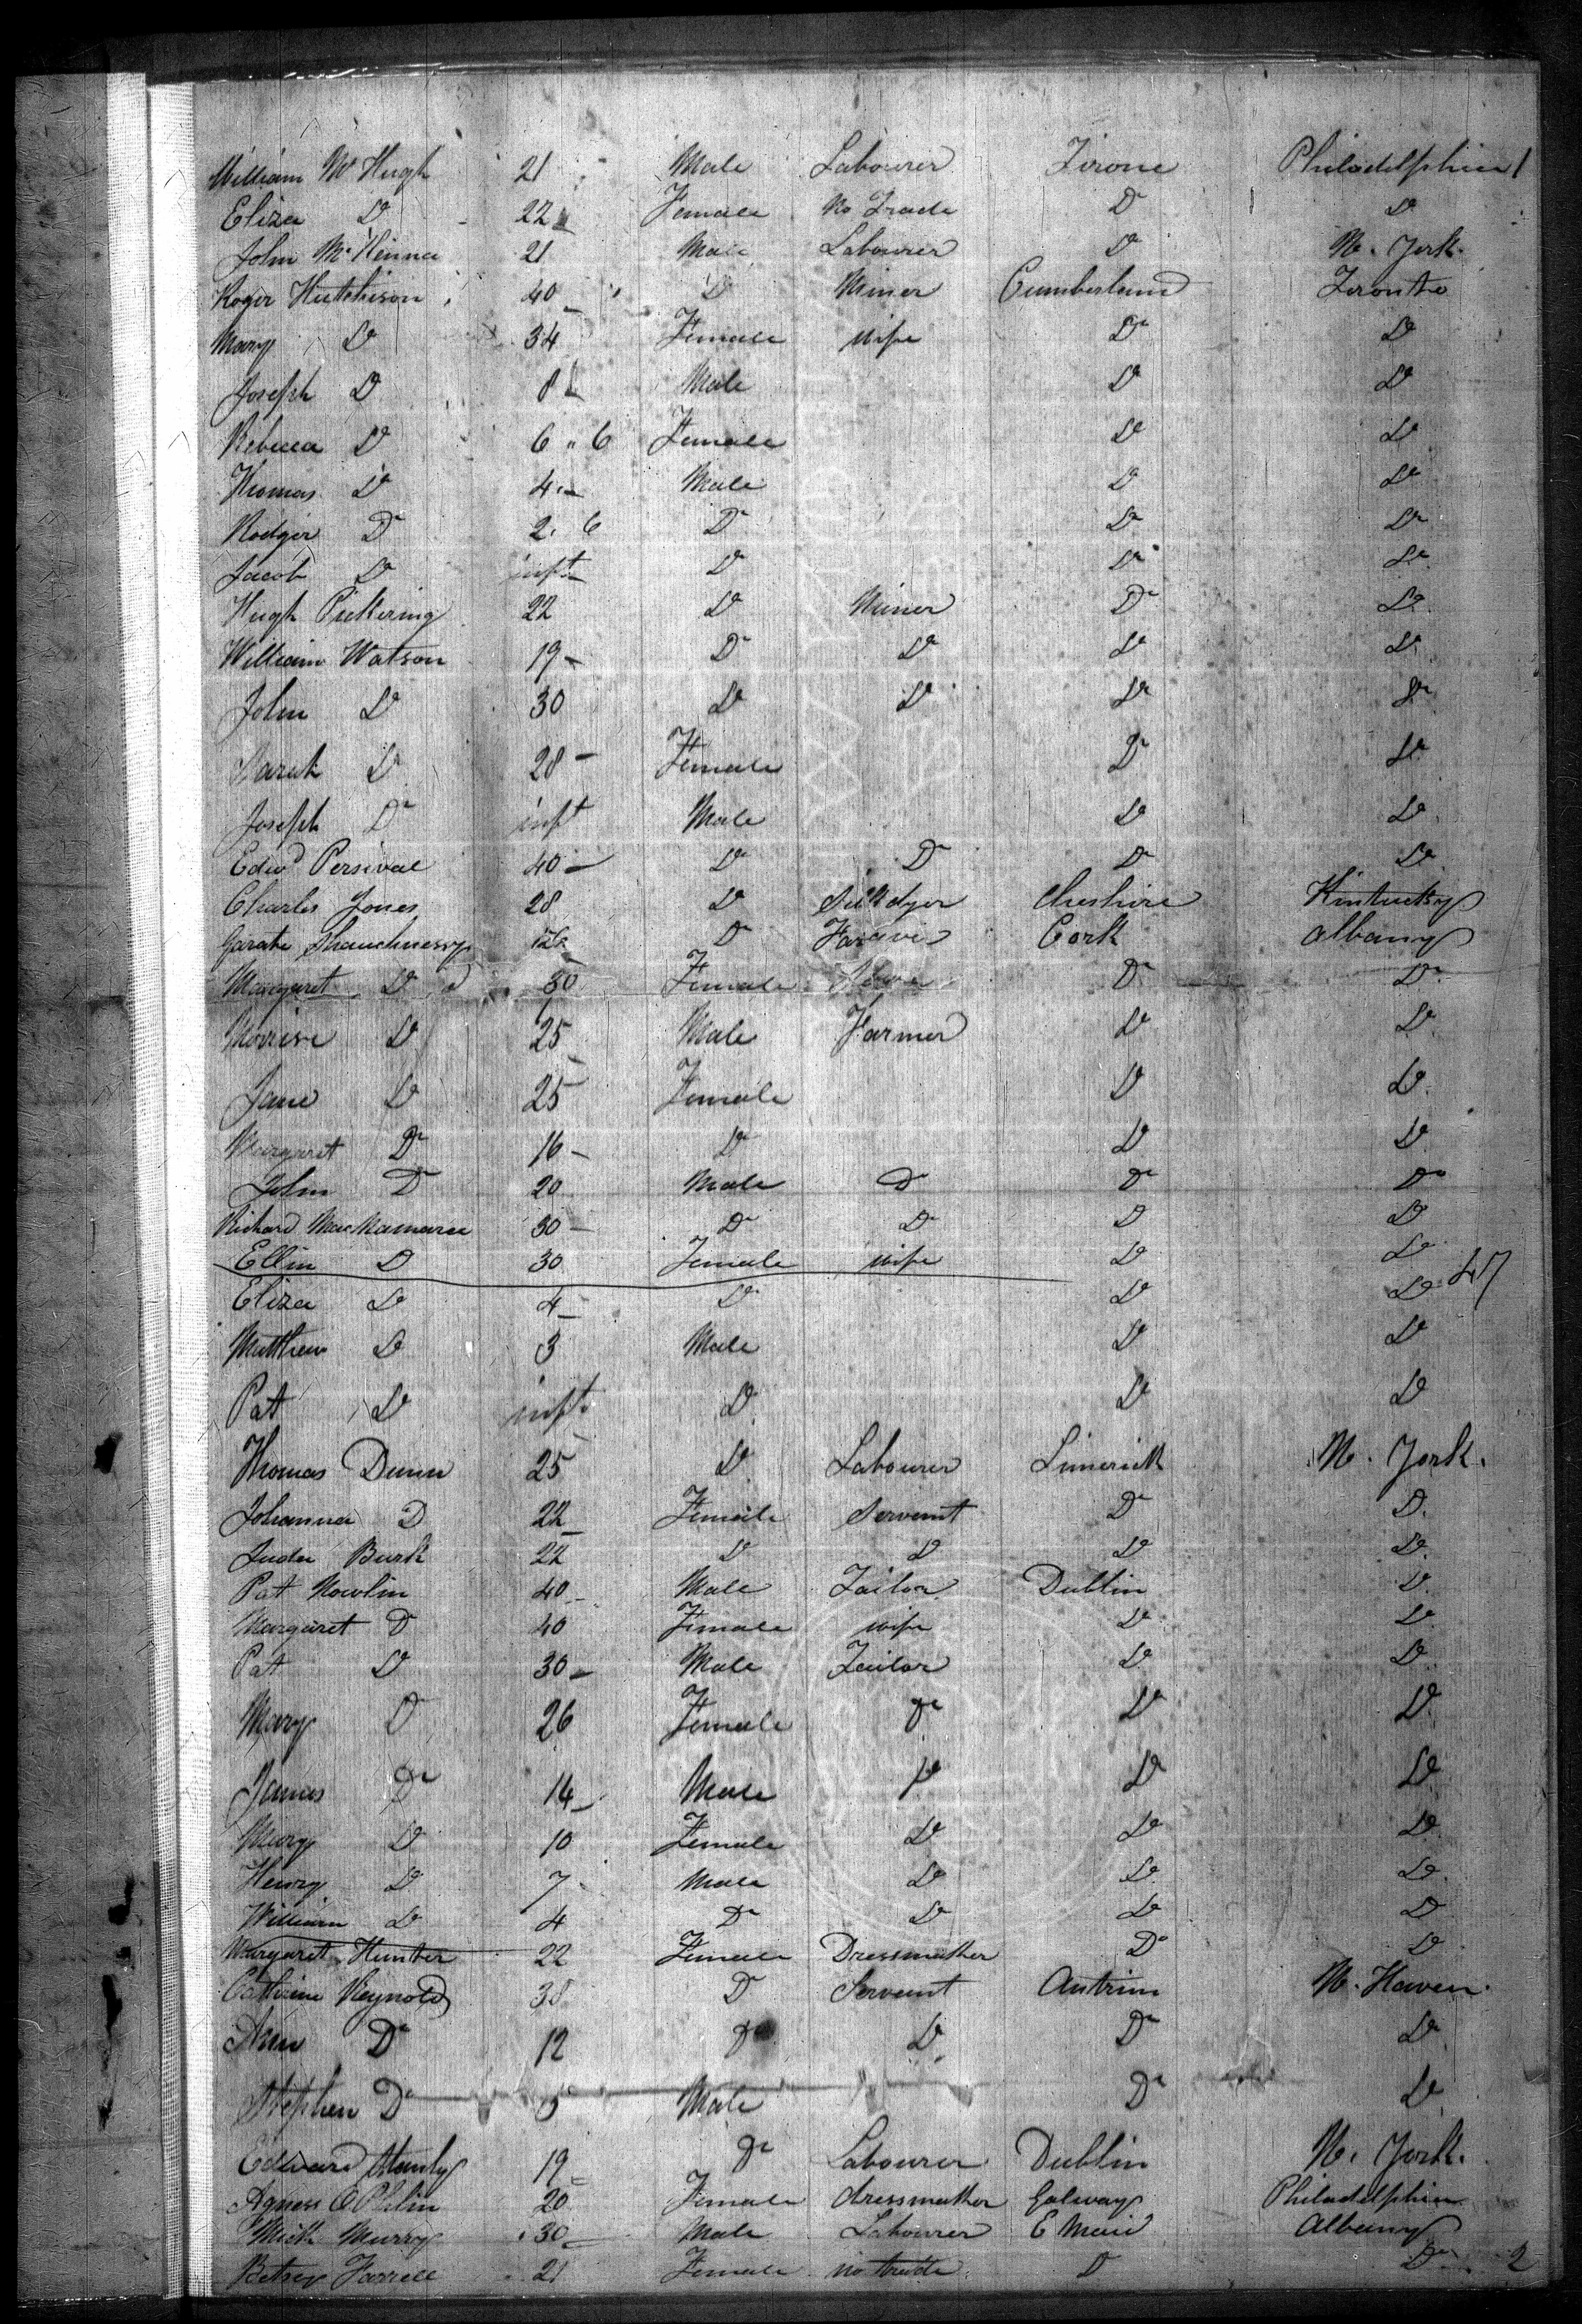 William Mc Hugh 21 Male Labourer Tirone Philadelphia 1
Eliza Do 22 Female No Trade Do Do
John Mc Kenna 21 Male Labourer Do N. York.
Roger Hutchison 40 Do Miner Cumberland Toronto
Mary Do 34 Female wife Do Do
Joseph Do 8 Male Do Do
Rebecca Do 6 " 6 Female Do Do
Thomas Do 4 Male Do Do
Rodger Do 2. 6 Do Do Do
Jacob Do inft Do Do Do
Hugh Pickering 22 Do Miner Do Do
William Watson 19 Do Do Do Do
John Do 30 Do Do Do Do
Sarah Do 28 Female Do Do
Joseph Do inft Male Do Do
Edwd Persival 40 Do Do Do Do
Charles Jones 28 Do Silk dyer Cheshire Kintucky
Shauchnessy Do Cork Albany
Margaret Do 50 Female Do Do
Morrise Do 25 Male Farmer Do Do
Jane Do 25 Female Do Do
Margaret Do 16 Do Do Do
John Do 20 Male Do Do Do
Richard MacNamara 30 Do Do Do Do
Ellin Do 30 Female wife Do Do
Eliza Do 4 Do Do Do 47
Matthew Do 3 Male Do Do
Pat Do inft Do Do Do
Thomas Dunn 25 Do Labourer Limerick N. York.
Johanna Do 22 Female Servant Do Do
Juda Burk 22 Do Do Do Do
Pat Nowlin 40 Male Tailor Dublin Do
Margaret Do 40 Female wife Do Do
Pat Do 30 Male Tailor Do Do
Mary Do 26 Female Do Do Do
James Do 14 Male Do Do Do
Mary Do 10 Female Do Do Do
Henry Do 7 Male Do Do Do
William Do 4 Do Do Do Do
Margaret Hunter 22 Female Dressmaker Do Do
Cathrine Reynolds 38 Do Servant Antrim N. Haven.
Ann Do 12 Do Do Do Do
Stephen Do 5 Male Do Do
Edward Manly 19 Do Labourer Dublin N. York.
Agness 20 Female dressmaker Galway Philadelphia
Mick Murry 30 Male Labourer Albany
Betsey Farrell 21 Female no trade Do Do 2